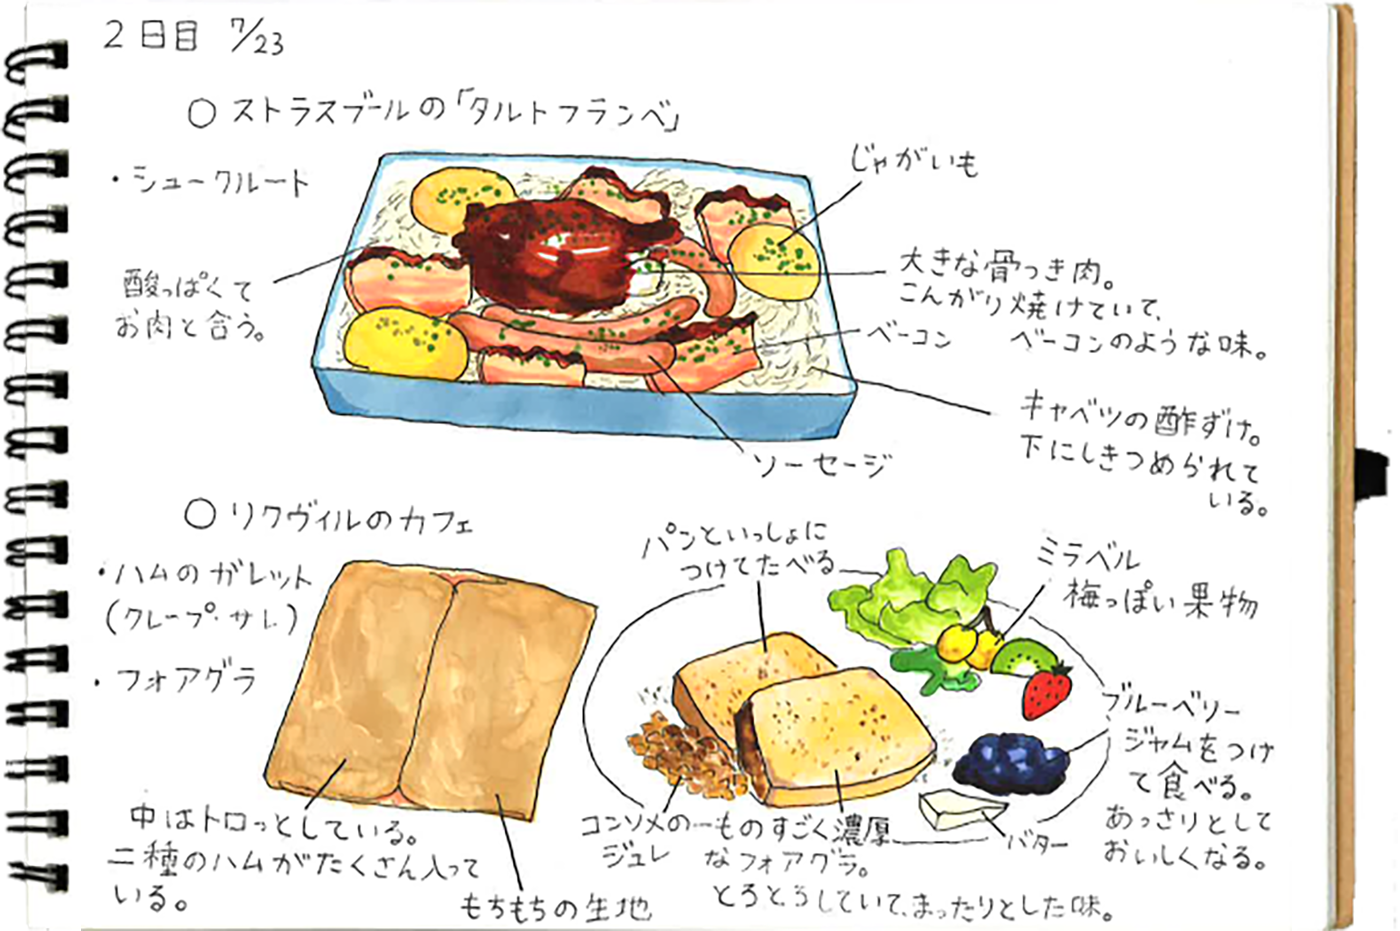 2日目 7/23
○ ストラスブールの「タルトフランベ」
・シュークルート
じゃがいも
酸っぱくて
お肉と合う。
大きな骨つき肉。
こんがり焼けていて、
ベーコンのような味。
ベーコン
キャベツの酢ずけ。
下にしきつめられて
いる。
ソーセージ
○ リクヴィルのカフェ
・ハムのガレット
(クレープ・サレ)
・フォアグラ
中はトロっとしている。
二種のハムがたくさん入って
いる。
もちもちの生地
パンといっしょに
つけてたべる
ミラベル
梅っぽい果物
ブルーベリー
ジャムをつけ
て食べる。
あっさりとして
おいしくなる。
バター
コンソメの
ジュレ
ものすごく濃厚
なフォアグラ。
とろとろしていて、まったりとした味。